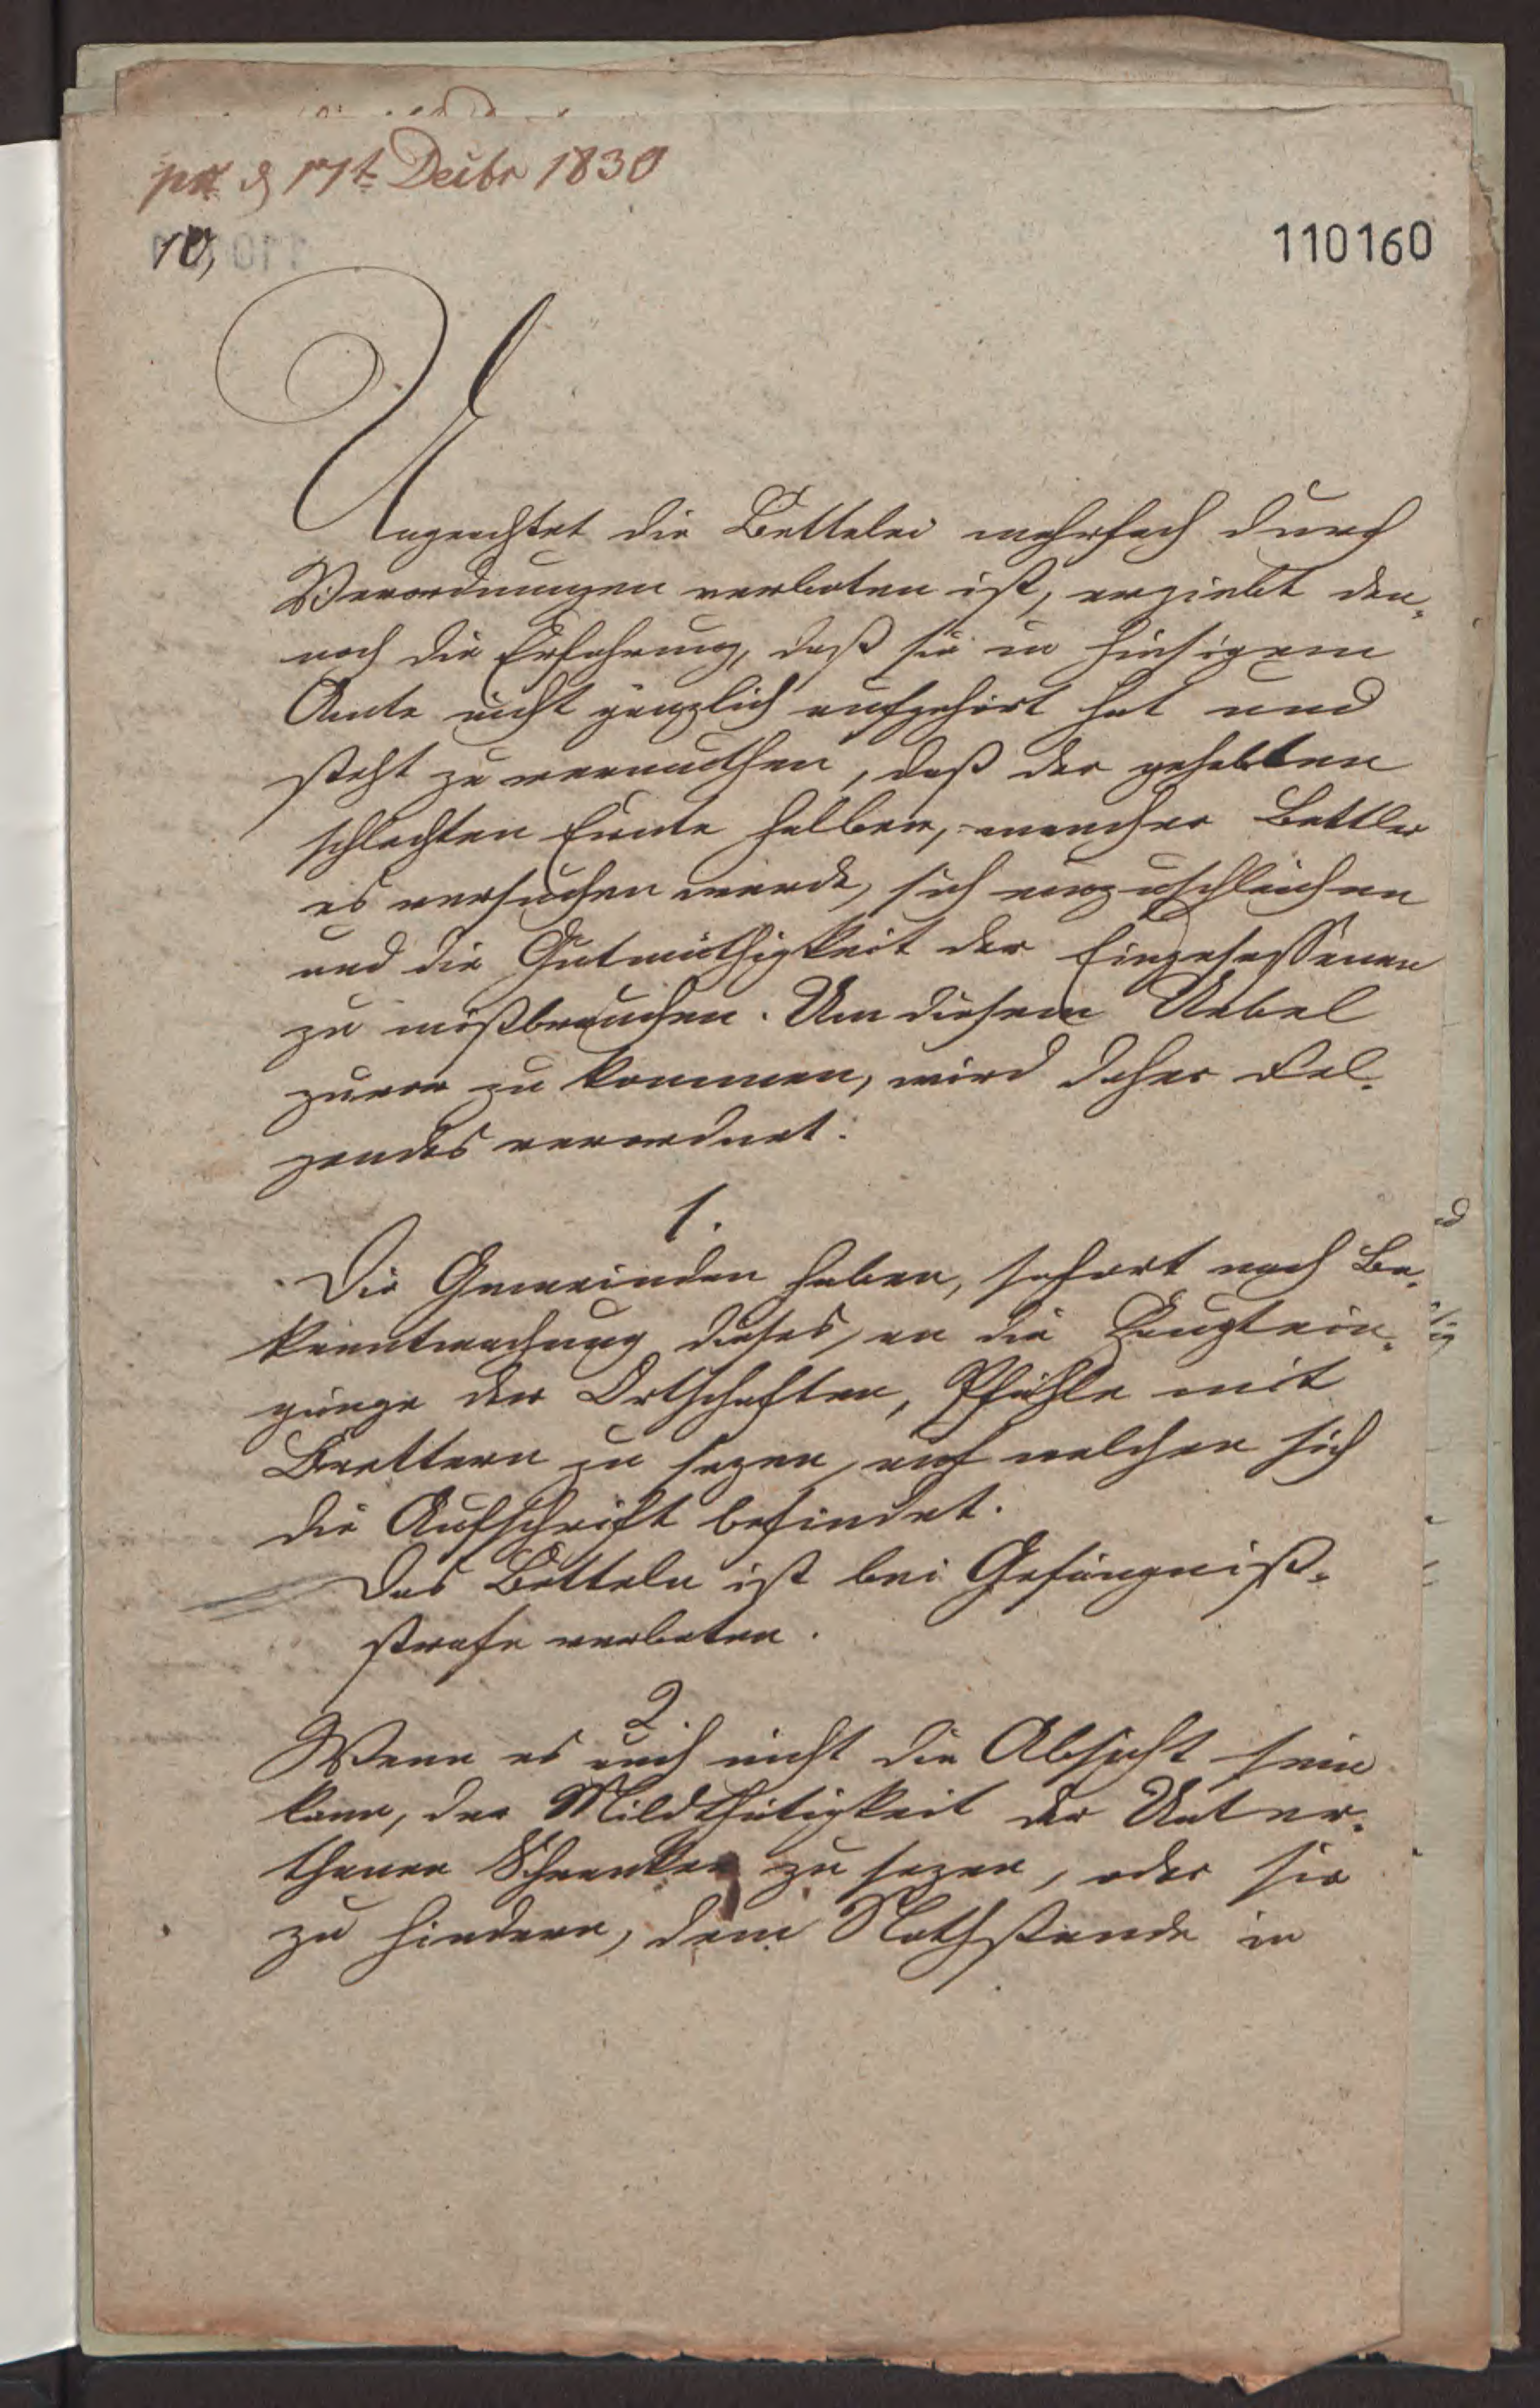 pr. d 17t Decbr 1830
10,
110160
Ungeachtet die Bettelei mehrfach durch
Verordnungen verboten ist, ergiebt den-
noch die Erfahrung, daß sie in hiesigem
Amte nicht gänzlich aufgehört hat und
steht zu vermuthen, daß der gehabten
schlechten Ernte halber, mancher Bettler
es versuchen werde, sich einzuschleichen
und die Gutmüthigkeit der Eingesessenen
zu mißbrauchen. Um diesem Uebel
zuvor zu kommen, wird daher Fol-
gendes verordnet:
1.
Die Gemeinden haben, sofort nach Be-
kanntmachung dieses, an die Hauptein-
gänge der Ortschaften, Pfähle mit
Brettern zu sezen, auf welchen sich
die Aufschrift befindet.
Das Betteln ist bei Gefängniß-
strafe verboten.
2.
Wenn es auch nicht die Absicht sein
kann, der Mildthätigkeit der Unter-
thanen Schranken zu sezen, oder sie
zu hindern, dem Nothstande in